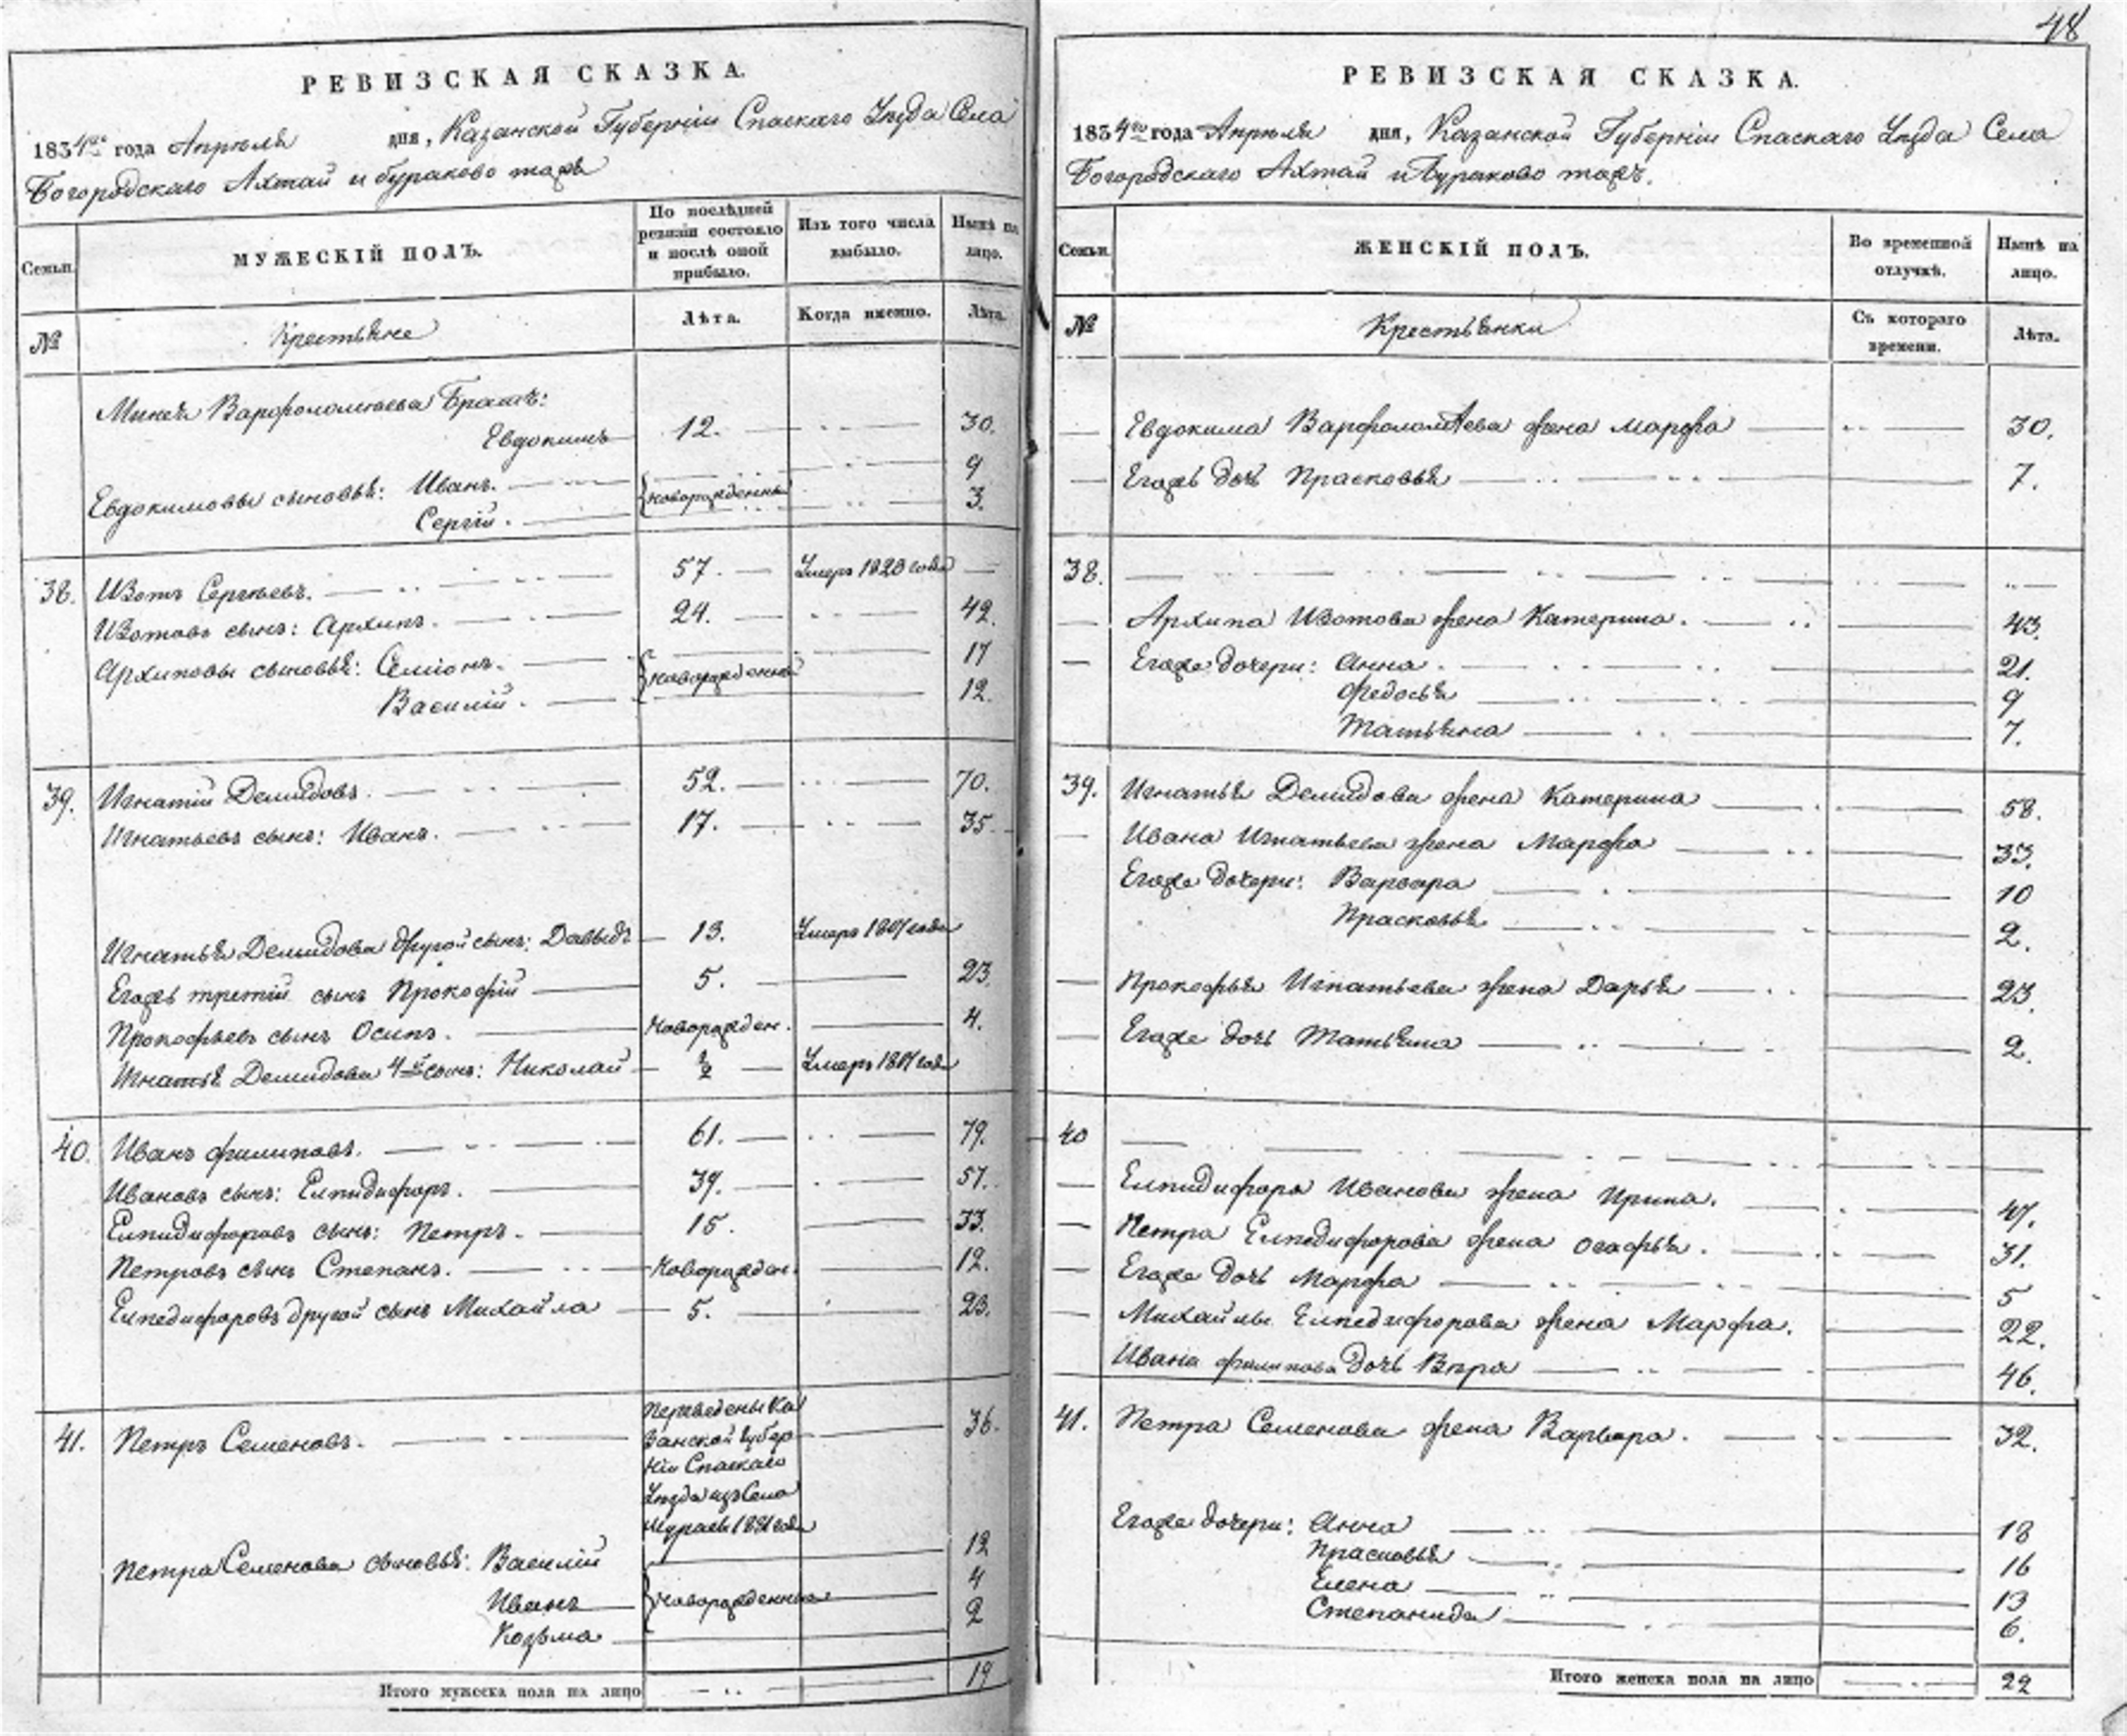 48
РЕВИЗСКАЯ СКАЗКА.
1834го года Апреля дня, Казанской Губернiи Спаскаго Уезда Села
Богородскаго Ахтай и бураково тожъ
Семьи.
МУЖЕСКIЙ ПОЛЪ.
По послѣдней ревизiи состояло и послѣ оной прибыло.
Изъ того числа выбыло.
Нынѣ на лицо.
№
Крестьяне
Лѣта.
Когда именно.
Лѣта.
Минея Варфоломеева Братъ:
Евдокимъ 12. 30.
Евдокимовы сыновья: Иванъ. новорожденны 9
Сергiй. 3.
38. Изотъ Сергеевъ. 57. Умеръ 1823 года
Изотовъ сынъ: Архипъ. 24. 42.
Архиповы сыновья: Семiонъ. новорожденной 17
Василiй. 12.
39. Игнатiй Демидовъ. 52. 70.
Игнатьевъ сынъ: Иванъ. 17. 35
Игнатья Демидова другой сынъ: Давыдъ 13. Умеръ года
Егожъ третiй сынъ Прокофiй 5. 23
Прокофьевъ сынъ Осипъ. Новорожден. 4.
Игнатья Демидова 4й сынъ: Николай ½ Умеръ года
40. Иванъ филиповъ. 61. 79.
Ивановъ сынъ: Елпидифоръ. 39. 57.
Елпидифоровъ сынъ: Петръ. 15. 33.
Петровъ сынъ Степанъ. Новорожден. 12.
Елпедифоровъ другой сынъ Михайла 5. 23.
41. Петръ Семеновъ. Переведены Ка 36.
занской Губер
нiи Спаскаго
Уезда изъ Села
года
Петра Семенова сыновья: Василiй 12
Иванъ новорожденные 4
Козьма 2
Итого мужеска пола на лицо 19
РЕВИЗСКАЯ СКАЗКА.
1834го года Апреля дня, Казанской Губернiи Спаскаго Уезда Села
Богородскаго Ахтай и Бураково тожъ.
Семьи.
ЖЕНСКIЙ ПОЛЪ.
Во временной отлучкѣ.
Нынѣ на лицо.
№
Крестьянки
Съ котораго времени.
Лѣта.
Евдокима Варфоломѣева жена Марфа 30.
Егожъ дочь Прасковья 7.
38.
Архипа Изотова жена Катерина. 43.
Егоже дочери: Анна. 21.
Федосья 9
Татьяна 7.
39. Игнатья Демидова жена Катерина 58.
Ивана Игнатьева жена Марфа 33.
Егоже дочери: Варвара 10
Прасковья 2.
Прокофья Игнатьева жена Дарья 23.
Егоже дочь Татьяна 2.
40
Елпидифора Иванова жена Ирина. 47.
Петра Елпедифорова жена Агафья. 31.
Егоже дочь Марфа 5
Михайлы Елпедифорова жена Марфа. 22.
Ивана филипова дочь Вера 46.
41. Петра Семенова жена Варвара. 32.
Егоже дочери: Анна 18
Прасковья 16
Елена 13
Степанида 6.
Итого женска пола на лицо 22